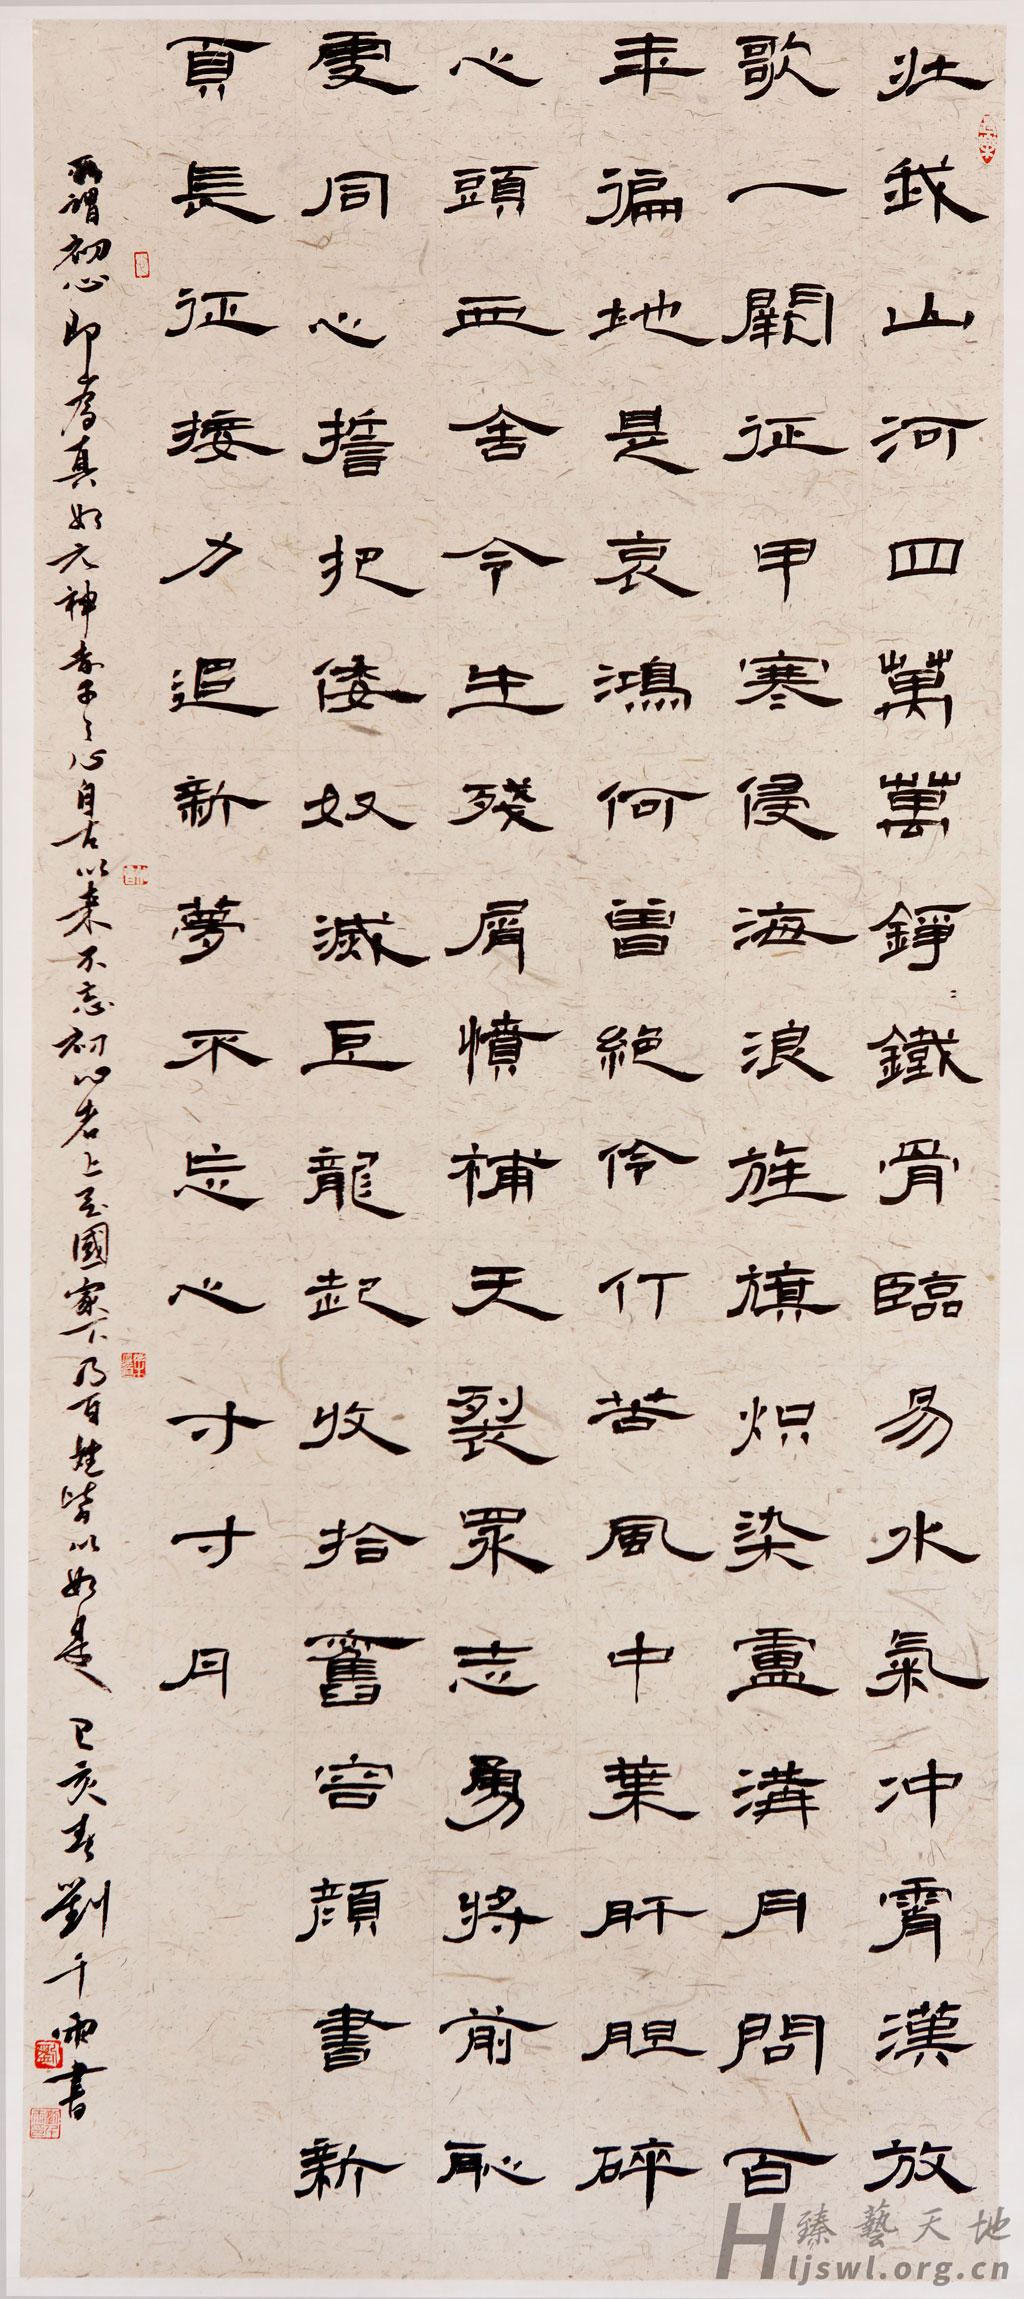 壯我山河四萬萬錚鐵骨臨易水氣沖霄漢放
歌一闕征甲寒侵海浪旌旗熾染盧溝月問百
年徧地是哀鴻何曾絕伶仃苦風中葉肝胆碎
心頭血舍今生殘屑憤補天裂眾志勇將前恥
雯同心誓把倭奴滅巨龍起收拾舊容顏書新
頁長征接力追新夢不忘心寸寸月
所謂初心即為真如元神赤子之心自古以來不忘初心者上至國家下乃百姓皆以如是 己亥春劉千雨書
臻藝天地
Hljswl.org.cn